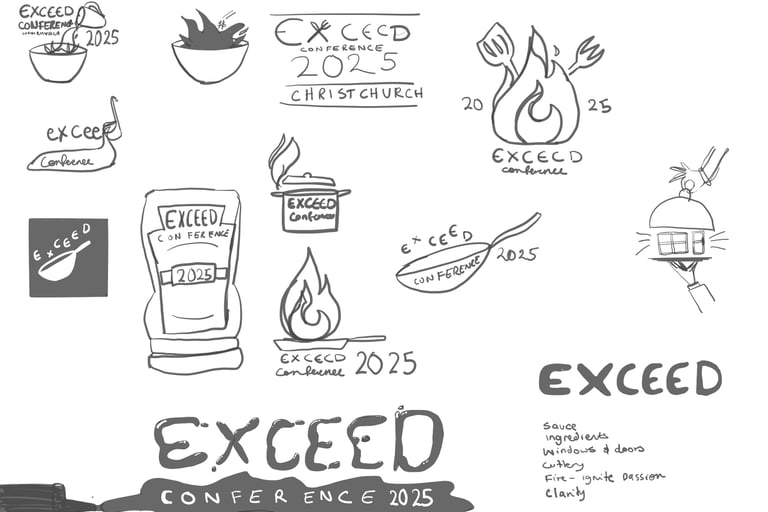 EXCEED
CONFERENCE
2025
EXCECD
CONFERENCE
2025
CHRISTCHURCH
20 25
EXCECD
conference
exceed
Conference
EXCEED
Conference
EXCEED
CONFERENCE
2025
EXCEED
EXCEED
CONFERENCE
2025
EXCECD
Conference 2025
EXCEED
CONFERENCE 2025
EXCEED
Sauce
ingredients
Windows & doors
Cutlery
Fire - ignite passion
Clarity